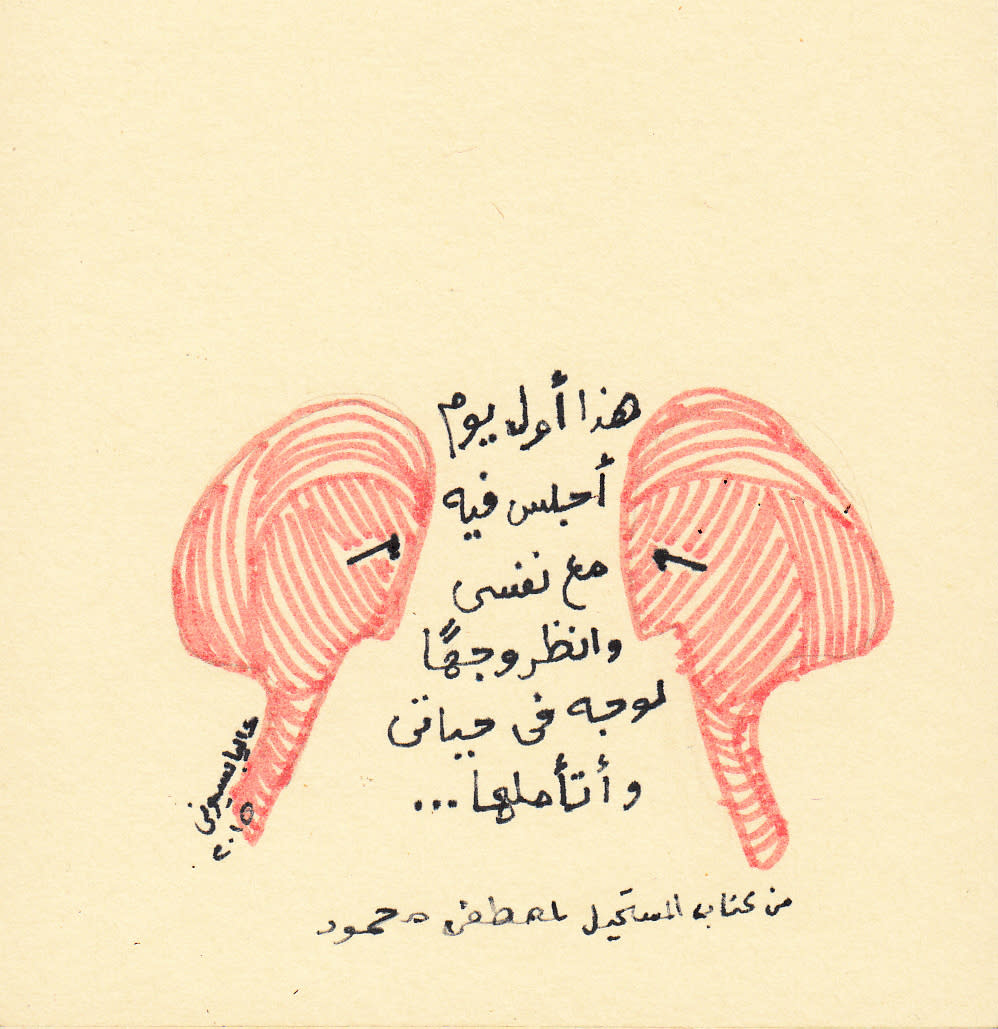 هذا أول يوم
أجلس فيه
مع نفسى
وانظر وجهًا
لوجه فى حياتى
وأتأملها...
من كتاب المستحيل لمصطفى محمود
عاليا بسيونى
٢٠١٥